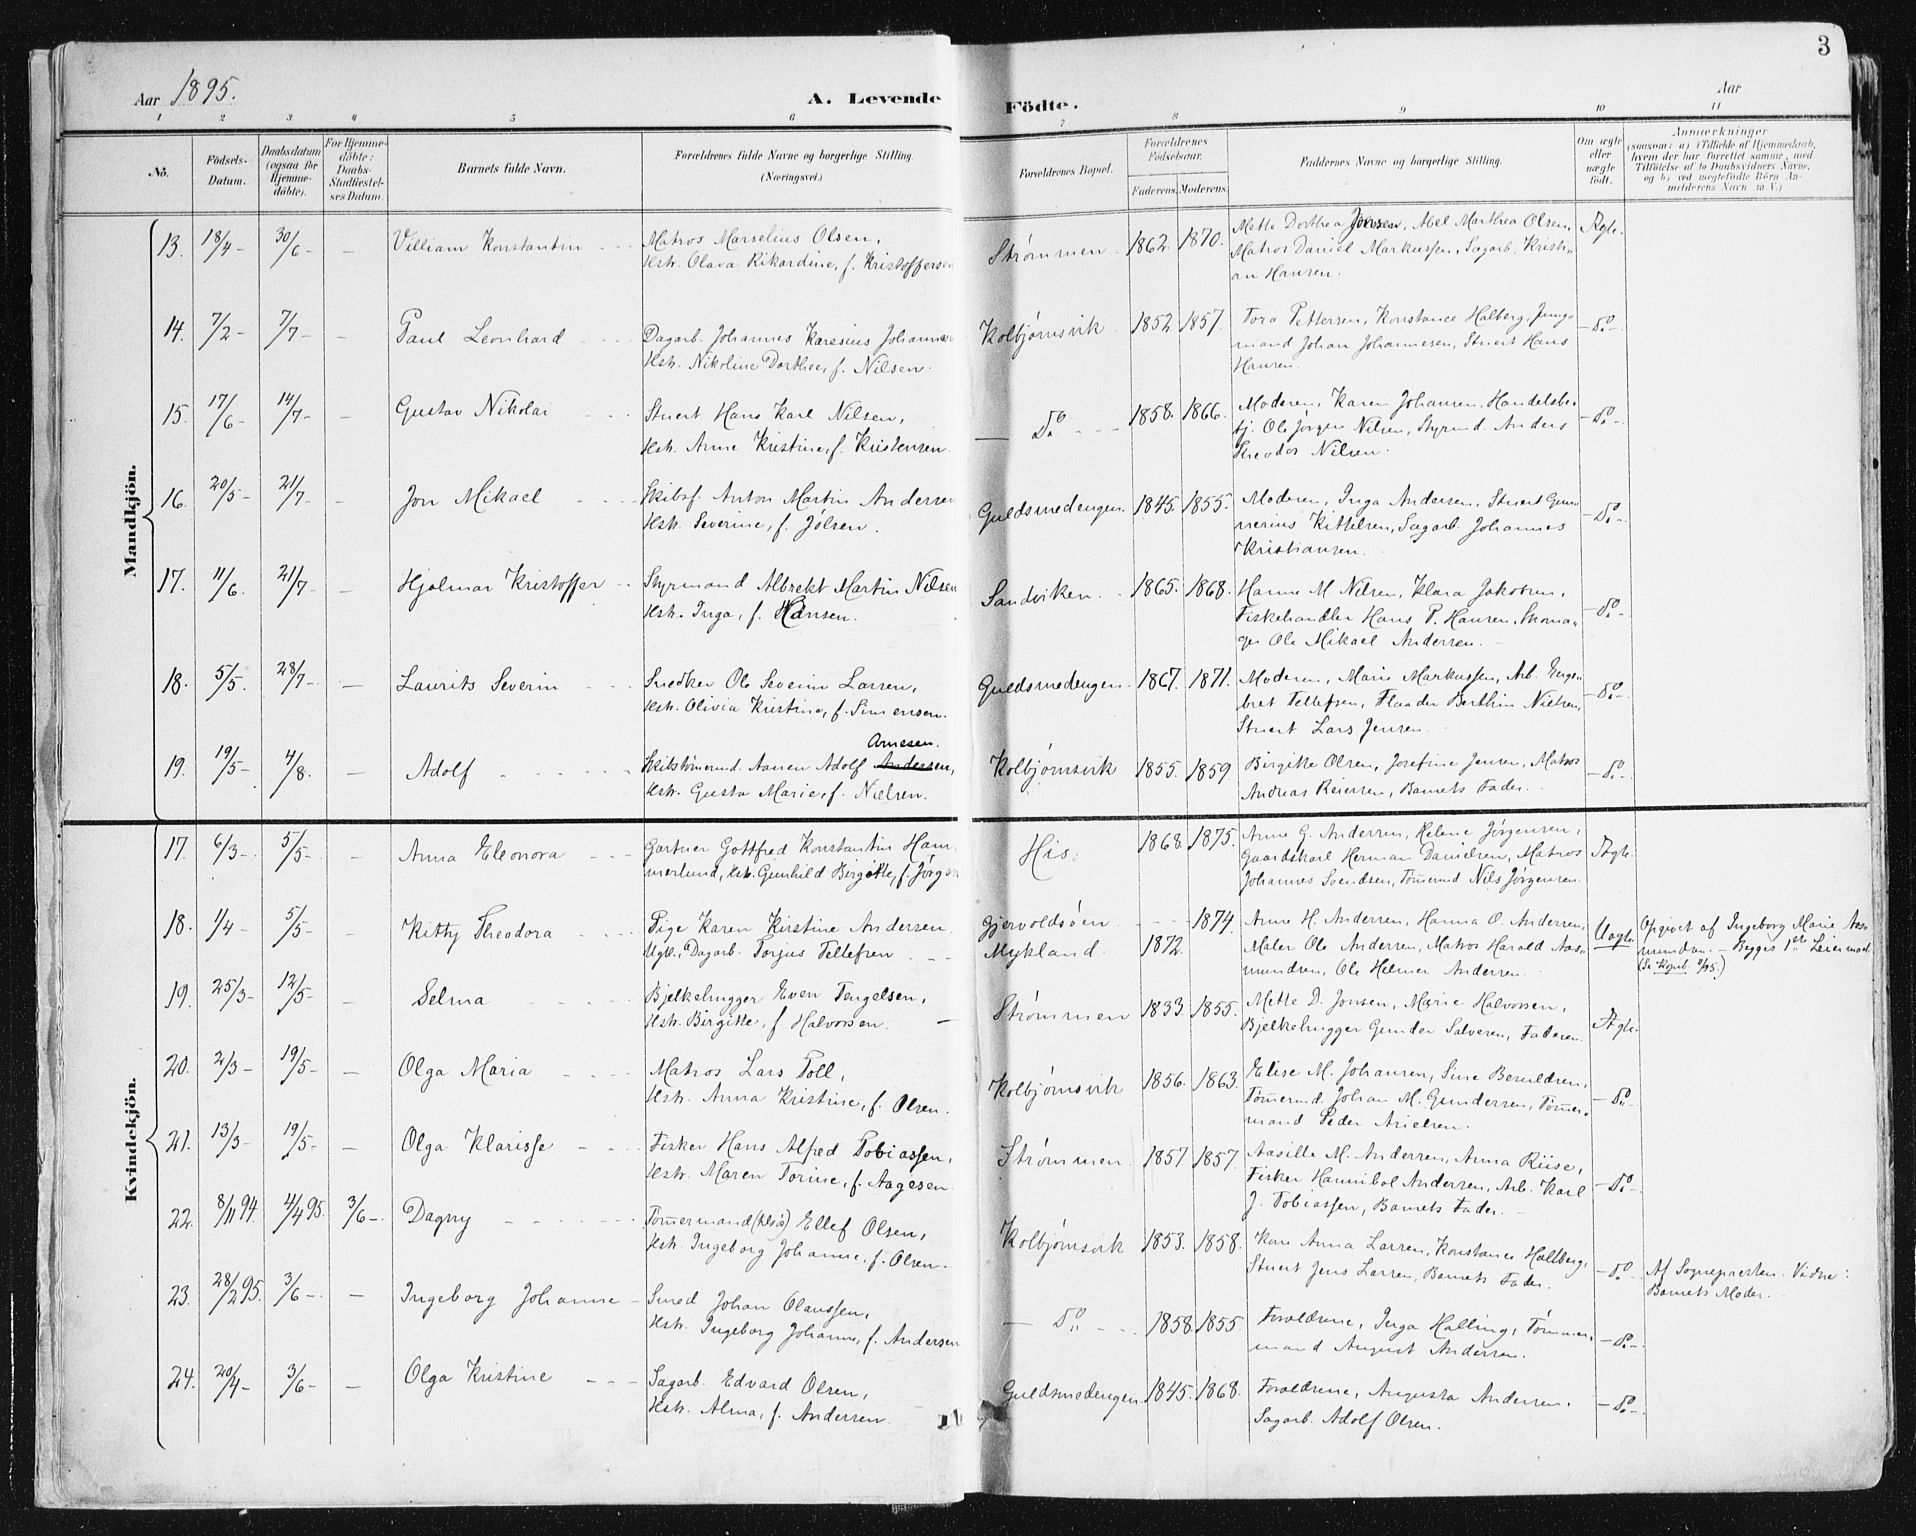 3
Aar 1895.
A. Levende
Födte.
Aar
1 2 3 4 5 6 7 8 9 10 11
No. Födsels-Datum. Daabsdatum (ogsaa for Hjemme-döbte). For Hjemme-döbte: Daabs-Stadfæstel-ses Datum. Barnets fulde Navn. Forældrenes fulde Navne og borgerlige Stilling. (Næringsvei.) Forældrenes Bopæl. Forældrenes Födselsaar. Faderens. Moderens. Faddernes Navne og borgerlige Stilling. Om ægte eller uægte födt. Anmærkninger (saasom: a) i Tilfælde af Hjemmedaab, hvem der har forrettet samme, med Tilföielse af to Daabsvidners Navne, og b) ved uægtefödte Börn An-melderens Navn m. V.)
Mandkjön.
13. 18/4- 30/6 - Villiam Konstantin Matros Marselius Olsen,
Hstr. Olava Rikardine, f. Kristoffersen
Strømmen 1862. 1870. Mette Dorthea Jensen, Abel Marthea Olsen,
Matros Daniel Markussen, Sagarb. Kristi-
an Hansen. Ægte.
14. 7/2- 7/7- - Paul Leonhard Dagarb. Johannes Karesius Johannes
Hstr. Nikoline Dorthea, f. Nilsen.
Kolbjørnsvik 1852. 1857. Tora Pettersen, Konstance Halberg, Jung-
mand Johan Johannesen, Stuert Hans
Hansen. - Do -
15. 17/6- 14/7- - Gustav Nikolai Stuert Hans Karl Nilsen,
Hstr. Anne Kristine, f. Kristensen.
- Do - 1858. 1866. Moderen, Karen Johansen, Handelsbe-
tj. Ole Jørgen Nilsen, Styrmd. Anders
Theodor Nilsen. - Do -
16. 20/5- 21/7- - Jon Mikael Skibsf. Anton Martin Andersen
Hstr. Severine, f. Jølsen.
Guldsmedengen. 1845. 1855. Moderen, Inga Andersen, Stuert Gun-
nerius Kittelsen, Sagarb. Johannes
Kristiansen. - Do -
17. 11/6. 21/7- - Hjalmar Kristoffer Styrmand Albrekt Martin Nilsen
Hstr. Inga, f. Hansen.
Sandviken. 1865. 1868. Hanne M. Nilsen, Klara Jakobsen,
Fiskehandler Hans P. Hansen, Skoma-
ger Ole Mikael Andersen. - Do -
18. 5/5. 28/7- - Laurits Severin Snedker Ole Severin Larsen,
Hstr. Olivia Kristine, f. Simensen.
Guldsmedengen. 1867. 1871. Moderen, Marie Markussen, Arb. Enge-
bret Tellefsen, Flaader Berthin Nielsen,
Stuert Lars Jensen. - Do -
19. 19/5- 4/8. - Adolf Skibstømmermd. Aanen Adolf Andersen, Arnesen.
Hstr. Gusta Marie, f. Nielsen.
Kolbjørnsvik 1855. 1859. Birgitte Olsen, Josefine Jensen, Matros
Andreas Reiersen, Barnets Fader. - Do -
Kvindekjön.
17. 6/3- 5/5- - Anna Eleonora Gartner Gottfred Konstantin Ham
merlund, Hstr. Gunhild Birgitte, f. Jørgen
His. 1868. 1875. Anne G. Andersen, Helene Jørgensen,
Gaardskarl Herman Danielsen, Matros
Johannes Svendsen, Tømmermd Nils Jørgensen. Ægte.
18. 1/4- 5/5- - Kitty Theodora Pige Karen Kirstine Andersen
Ugk., Dagarb. Torjus Tellefsen
Gjervoldsöen 1874.
Mykland. 1872. Anne H. Andersen, Hanna O. Andersen,
Maler Ole Andersen, Matros Harald Aas-
mundsen, Ole Helmer Andersen. Uægte Opgivet af Ingeborg Marie Aas
mundsen. - Begges 1ste Leiermaal.
19. 25/3- 12/5- - Selma Bjelkehugger Even Tengelsen,
Hstr. Birgitte, f. Halvorsen.
Strømmen 1833. 1855. Mette D. Jonsen, Marie Halvorsen,
Bjelkehugger Gunder Salvesen, Faderen. Ægte.
20. 2/3- 19/5- - Olga Maria Matros Lars Toll,
Hstr. Anna Kristine, f. Olsen.
Kolbjørnsvik 1856. 1863. Elise M. Johansen, Sine Berntsen,
Tømmermd. Johan M. Gundersen, Tømmer-
mand Peder Arielsen. - Do -
21. 13/3- 19/5- - Olga Klarisse Fisker Hans Alfred Tobiassen,
Hstr. Maren Torine, f. Aagesen.
Strømmen. 1857 1857. Aasille M. Andersen, Anna Riise,
Fisker Hannibal Andersen, Arb. Karl
J. Tobiassen, Barnets Fader. - Do -
22. 8/11 94. 4/4 95. 3/6-. Dagny Tømmermand Ellef Olsen,
Hstr. Ingeborg Johanne, f. Olsen.
Kolbjørnsvik 1853. 1858. Kone Anna Larsen, Konstance Hallberg,
Stuert Jens Larsen, Barnets Fader. - Do - Af Sognepresten. Vidne:
Barnets Moder.
23. 28/2 95. 3/6-. - Ingeborg Johanne Smed Johan Olaussen,
Hstr. Ingeborg Johanne, f. Andersen
- Do - 1858. 1855. Forældrene, Inga Halling, Tømmer-
mand August Andersen. - Do -
24. 20/4- 3/6- - Olga Kristine Sagarb. Edvard Olsen,
Hstr. Alma, f. Andersen.
Guldsmedengen. 1845. 1868. Forældrene, Augusta Andersen,
Sagarb. Adolf Olsen. - Do -